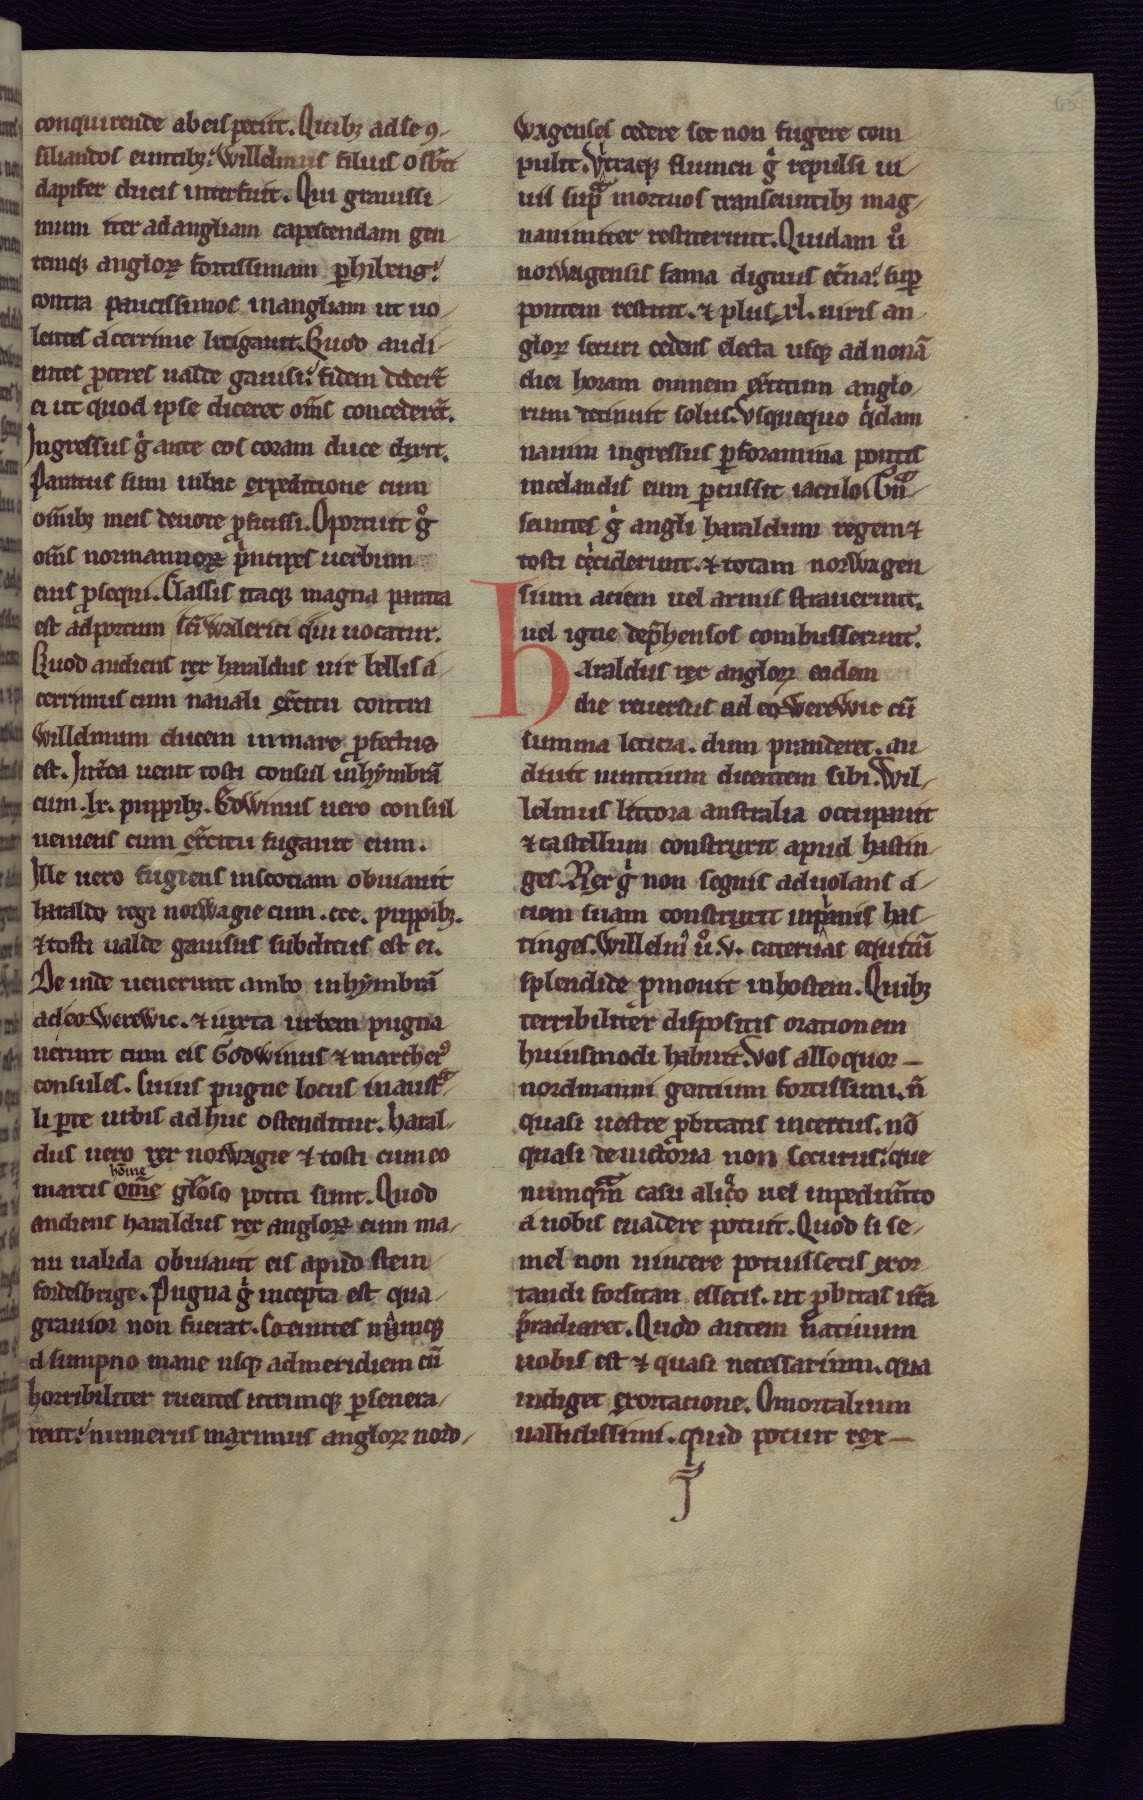 65
conquirende ab eis petiit. Quibȝ ad se ꝯ-
siliandos euntibȝ: Willelmus filius osb̄ti
dapifer ducis interfuit. Qui grauissi-
mum iter ad angliam capescendam gen
temqȝ angloꝝ fortissimam ꝑhibens:
contra paucissimos in angliam ire uo-
lentes acerrime litigauit. Quod audi-
entes ꝓceres ualde gauisi: fidem dedert̄
ei ut quod ipse diceret om̄s concederēt.
Ingressus gͥ ante eos coram duce dixit.
Paratus sum in hac expeditione cum
om̄ibȝ meis deuote ꝓficisci. Oportuit gͦ
om̄s normannoꝝ pͥncipes uerbum
eius ꝓsequi. Classis itaqȝ magna parata
est ad portum sc̄i Walerici qui uocatur.
Quod audiens rex haraldus uir bellis a-
cerrimus cum nauali exc̄itu contra
Willelmum ducem in mare ꝓfectus
est. Int̄ea uenit tosti consul in hẏmbrā
cum .lx. puppibȝ. Edwinus uero consul
ueniens cum exc̄itu fugauit eum.
Ille uero fugiens in scotiam obuiauit
haraldo regi norwagie cum .ccc. puppibȝ.
⁊ tosti ualde gauisus subditus est ei.
De inde uenerunt ambo in hẏmbrā
ad eo-Werewic. ⁊ iuxta urbem pugna
uerunt cum eis Godwinus ⁊ marcherꝰ
consules. Cuius pugne locus in austᵃ-
li ꝑte urbis ad huc ostenditur. Haral-
dus uero rex norwagie ⁊ tosti cum eo
hoīne
martis om̄e gl̄oso potiti sunt. Quod
audiens haraldus rex angloꝝ cum ma-
nu ualida obuiauit eis apud stein-
fordesbrige. Pugna gͥ incepta est qua-
grauior non fuerat. Coeuntes nͣmqȝ
a summo mane usqȝ ad meridiem cū
horribiliter ruentes utrimqȝ ꝑseuera-
rent: numerus maximus angloꝝ nord-
wagenses cedere set non fugere com
pulit. Vltͣaqȝ flumen gͥ repulsi ui-
uis supᵃ mortuos transeuntibȝ mag-
nanimiter restiterunt. Quidam uͦ
norwagensis fama dignus et̄na: suꝑ
pontem restitit. ⁊ plus .xl. uiris an-
gloꝝ securi cedens electa usqȝ ad nonā
diei horam omnem exc̄itum anglo-
rum detinuit solus. Vsquequo qͥdam
nauim ingressus ꝑ foramina pontis
in celandis eum ꝑcussit iaculo. Tᵃn-
seuntes gͥ angli haraldum regem ⁊
tosti occiderunt. ⁊ totam norwagen
sium aciem uel armis strauerunt.
uel igne dep̄hensos combusserunt.
Haraldus rex angloꝝ eadem
die reuersus ad eo-Werewic cū
summa leticia. dum pranderet. au
diuit nuntium dicentem sibi. Wil-
lelmus littora australia occupauit
⁊ castellum construxit apud hastin-
ges. Rex gͥ non segnis aduolans a-
ciem suam construxit in pͥmis has-
tinges. Willelmꝰ uͦ .v. cateruas equitū
splendide ꝓmouit in hostem. Quibȝ
terribiliter dispositis orationem
huiusmodi habuit. Vos alloquor-
nordmanni gentium fortissimi. n̄
quasi uestre ꝓbitatis incertus. nō
quasi de uictoria non securus: que
numqᵃm casu aliqͦ uel inpedim̄to
a uobis euadere potuit. Quod si se-
mel non uincere potuissetis exor-
tandi forsitan essetis. ut ꝓbitas ur̄a
p̄radiaret. Quod autem natiuum
uobis est ⁊ quasi necessarium. qua
indiget exortacione. O mortalium
ualidissimi. quid potuit rex-